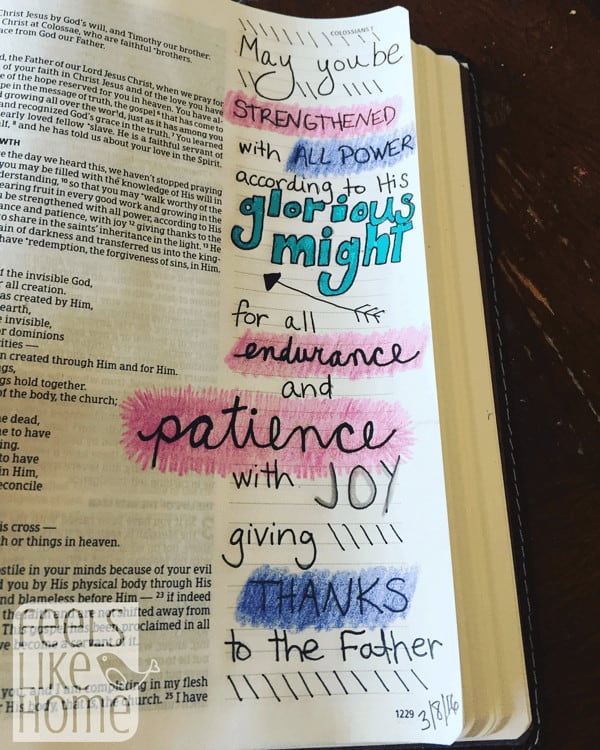 COLOSSIANS 1
Christ Jesus by God's will, and Timothy our brother.
Christ at Colossae, who are faithful brothers.
ace from God our Father.
d, the Father of our Lord Jesus Christ, when we pray for
of your faith in Christ Jesus and of the love you have
e of the hope reserved for you in heaven. You have al-
pe in the message of truth, the gospel 6 that has come to
d growing all over the world, just as it has among you
and recognized God's grace in the truth. 7 You learned
early loved fellow slave. He is a faithful servant of
lf, 8 and he has told us about your love in the Spirit.
WTH
e the day we heard this, we haven't stopped praying
you may be filled with the knowledge of His will in
derstanding, 10 so that you may walk worthy of the
earing fruit in every good work and growing in the
be strengthened with all power, according to His
ance and patience, with joy 12 giving thanks to the
to share in the saints' inheritance in the light. 13 He
ain of darkness and transferred us into the king-
have redemption, the forgiveness of sins, in Him.
of the invisible God,
r all creation.
as created by Him,
earth,
e invisible,
r dominions
ities —
n created through Him and for Him.
gs,
gs hold together.
of the body, the church;
e dead,
e to have
ing.
to have
in Him,
econcile
is cross —
h or things in heaven.
ostile in your minds because of your evil
d you by His physical body through His
nd blameless before Him — 23 if indeed
the faith and are not shifted away from
This gospel has been proclaimed in all
ve become a servant of it.
you, and I am completing in my flesh
r His body, that is, the church. 25 I have
May you be
STRENGTHENED
with ALL POWER
according to His
glorious
might
for all
endurance
and
patience
with JOY
giving
THANKS
to the Father
1229 3/8/16
one's
Like
home